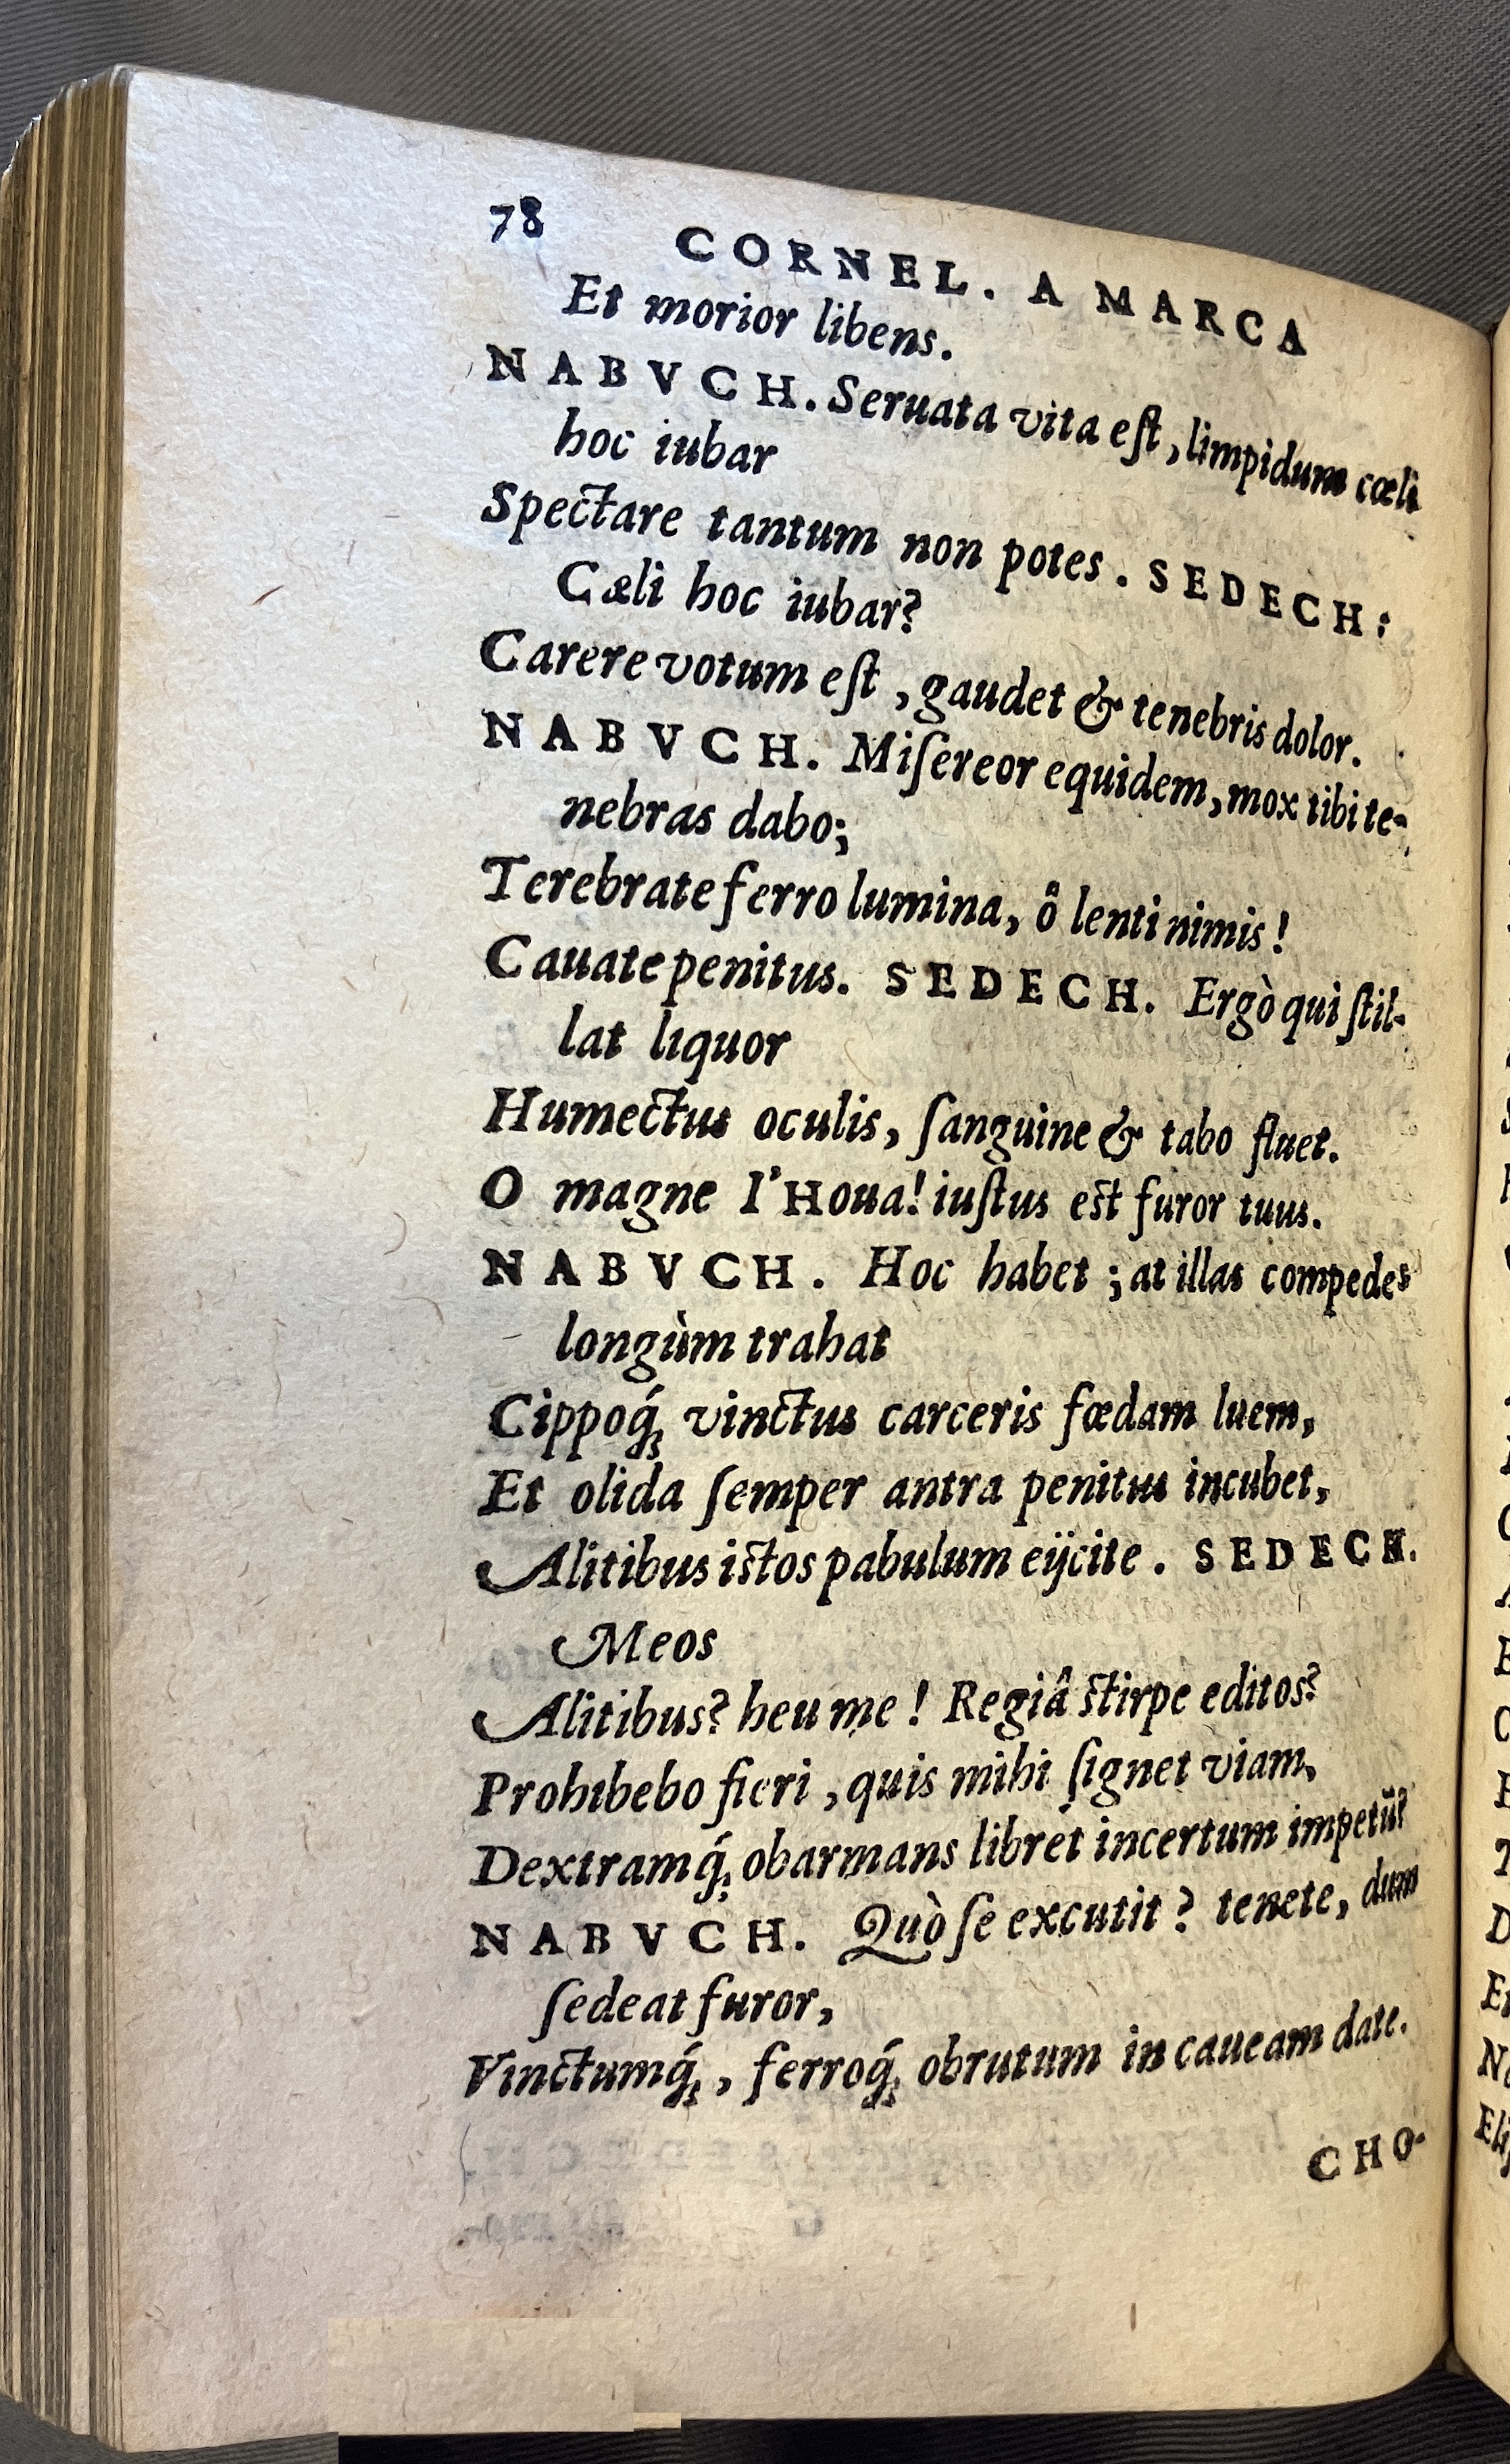 78 CORNEL. A MARCA
Et morior libens.
NABVCH. Seruata vita eſt, limpidum cœli
hoc iubar
Spectare tantum non potes. SEDECH:
Cæli hoc iubar?
Carere votum eſt, gaudet & tenebris dolor.
NABVCH. Miſereor equidem, mox tibi te-
nebras dabo;
Terebrate ferro lumina, ô lenti nimis!
Cauate penitus. SEDECH. Ergò qui ſtil-
lat liquor
Humectus oculis, ſanguine & tabo fluet.
O magne I'Houa! iuſtus est furor tuus.
NABVCH. Hoc habet; at illas compedes
longùm trahat
Cippoq́; vinctus carceris fœdam luem,
Et olida ſemper antra penitus incubet,
Alitibus istos pabulum eijcite. SEDECH.
Meos
Alitibus? heu me! Regiâ stirpe editos?
Prohibebo fieri, quis mihi ſignet viam,
Dextramq́; obarmans libret incertum impetū?
NABVCH. Quò ſe excutit? tenete, dum
ſedeat furor,
Vinctumq́;, ferroq́; obrutum in caueam date.
CHO-